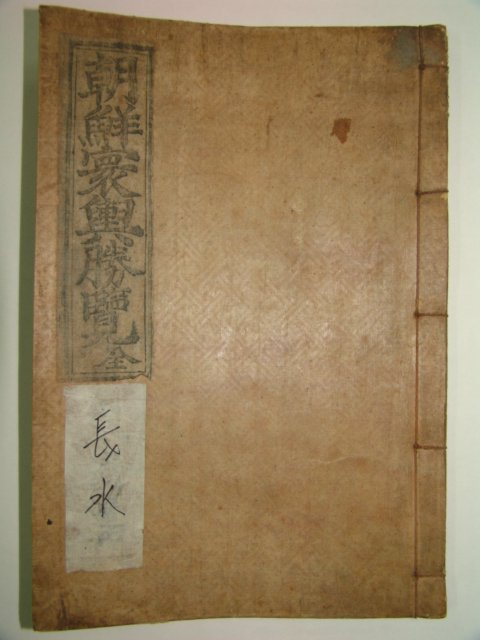 朝鮮寰輿勝覽全
長水